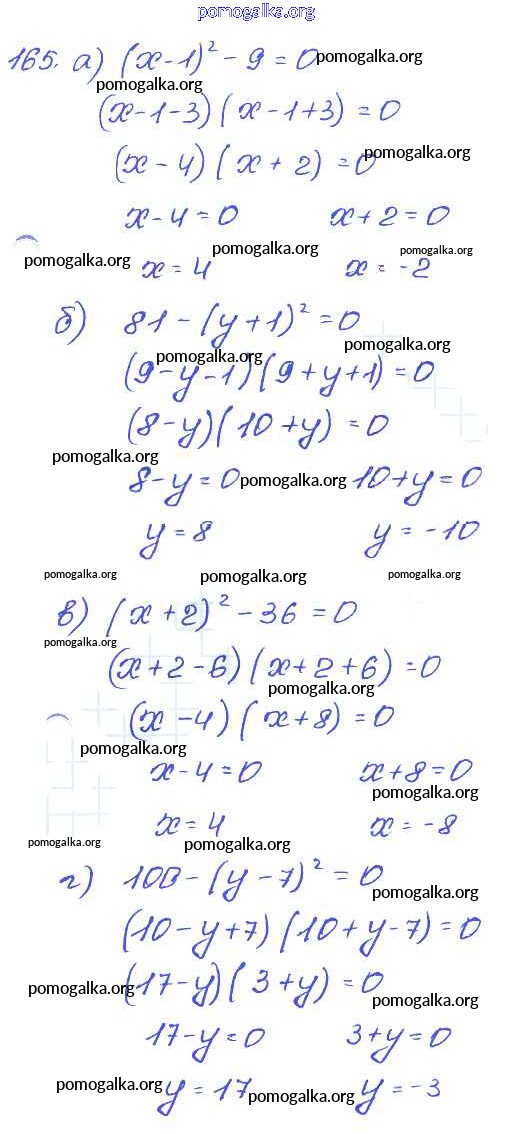 pomogalka.org
165. а) (x-1)² - 9 = 0 pomogalka.org
pomogalka.org
(x-1-3)(x-1+3) = 0
(x-4)(x+2) = 0 pomogalka.org
x-4=0 x+2=0
pomogalka.org pomogalka.org pomogalka.org
x=4 x=-2
б) 81-(y+1)²=0
pomogalka.org pomogalka.org
(9-y-1)(9+y+1)=0
(8-y)(10+y)=0
pomogalka.org
8-y=0 pomogalka.org 10+y=0
y=8 y=-10
pomogalka.org pomogalka.org pomogalka.org
в) (x+2)²-36=0
pomogalka.org
(x+2-6)(x+2+6)=0
pomogalka.org
(x-4)(x+8)=0
pomogalka.org
x-4=0 x+8=0
pomogalka.org
x=4 x=-8
pomogalka.org pomogalka.org
г) 100-(y-7)²=0
pomogalka.org
(10-y+7)(10+y-7)=0
pomogalka.org (17-y)(3+y)=0
pomogalka.org
17-y=0 3+y=0
pomogalka.org y=17 pomogalka.org y=-3